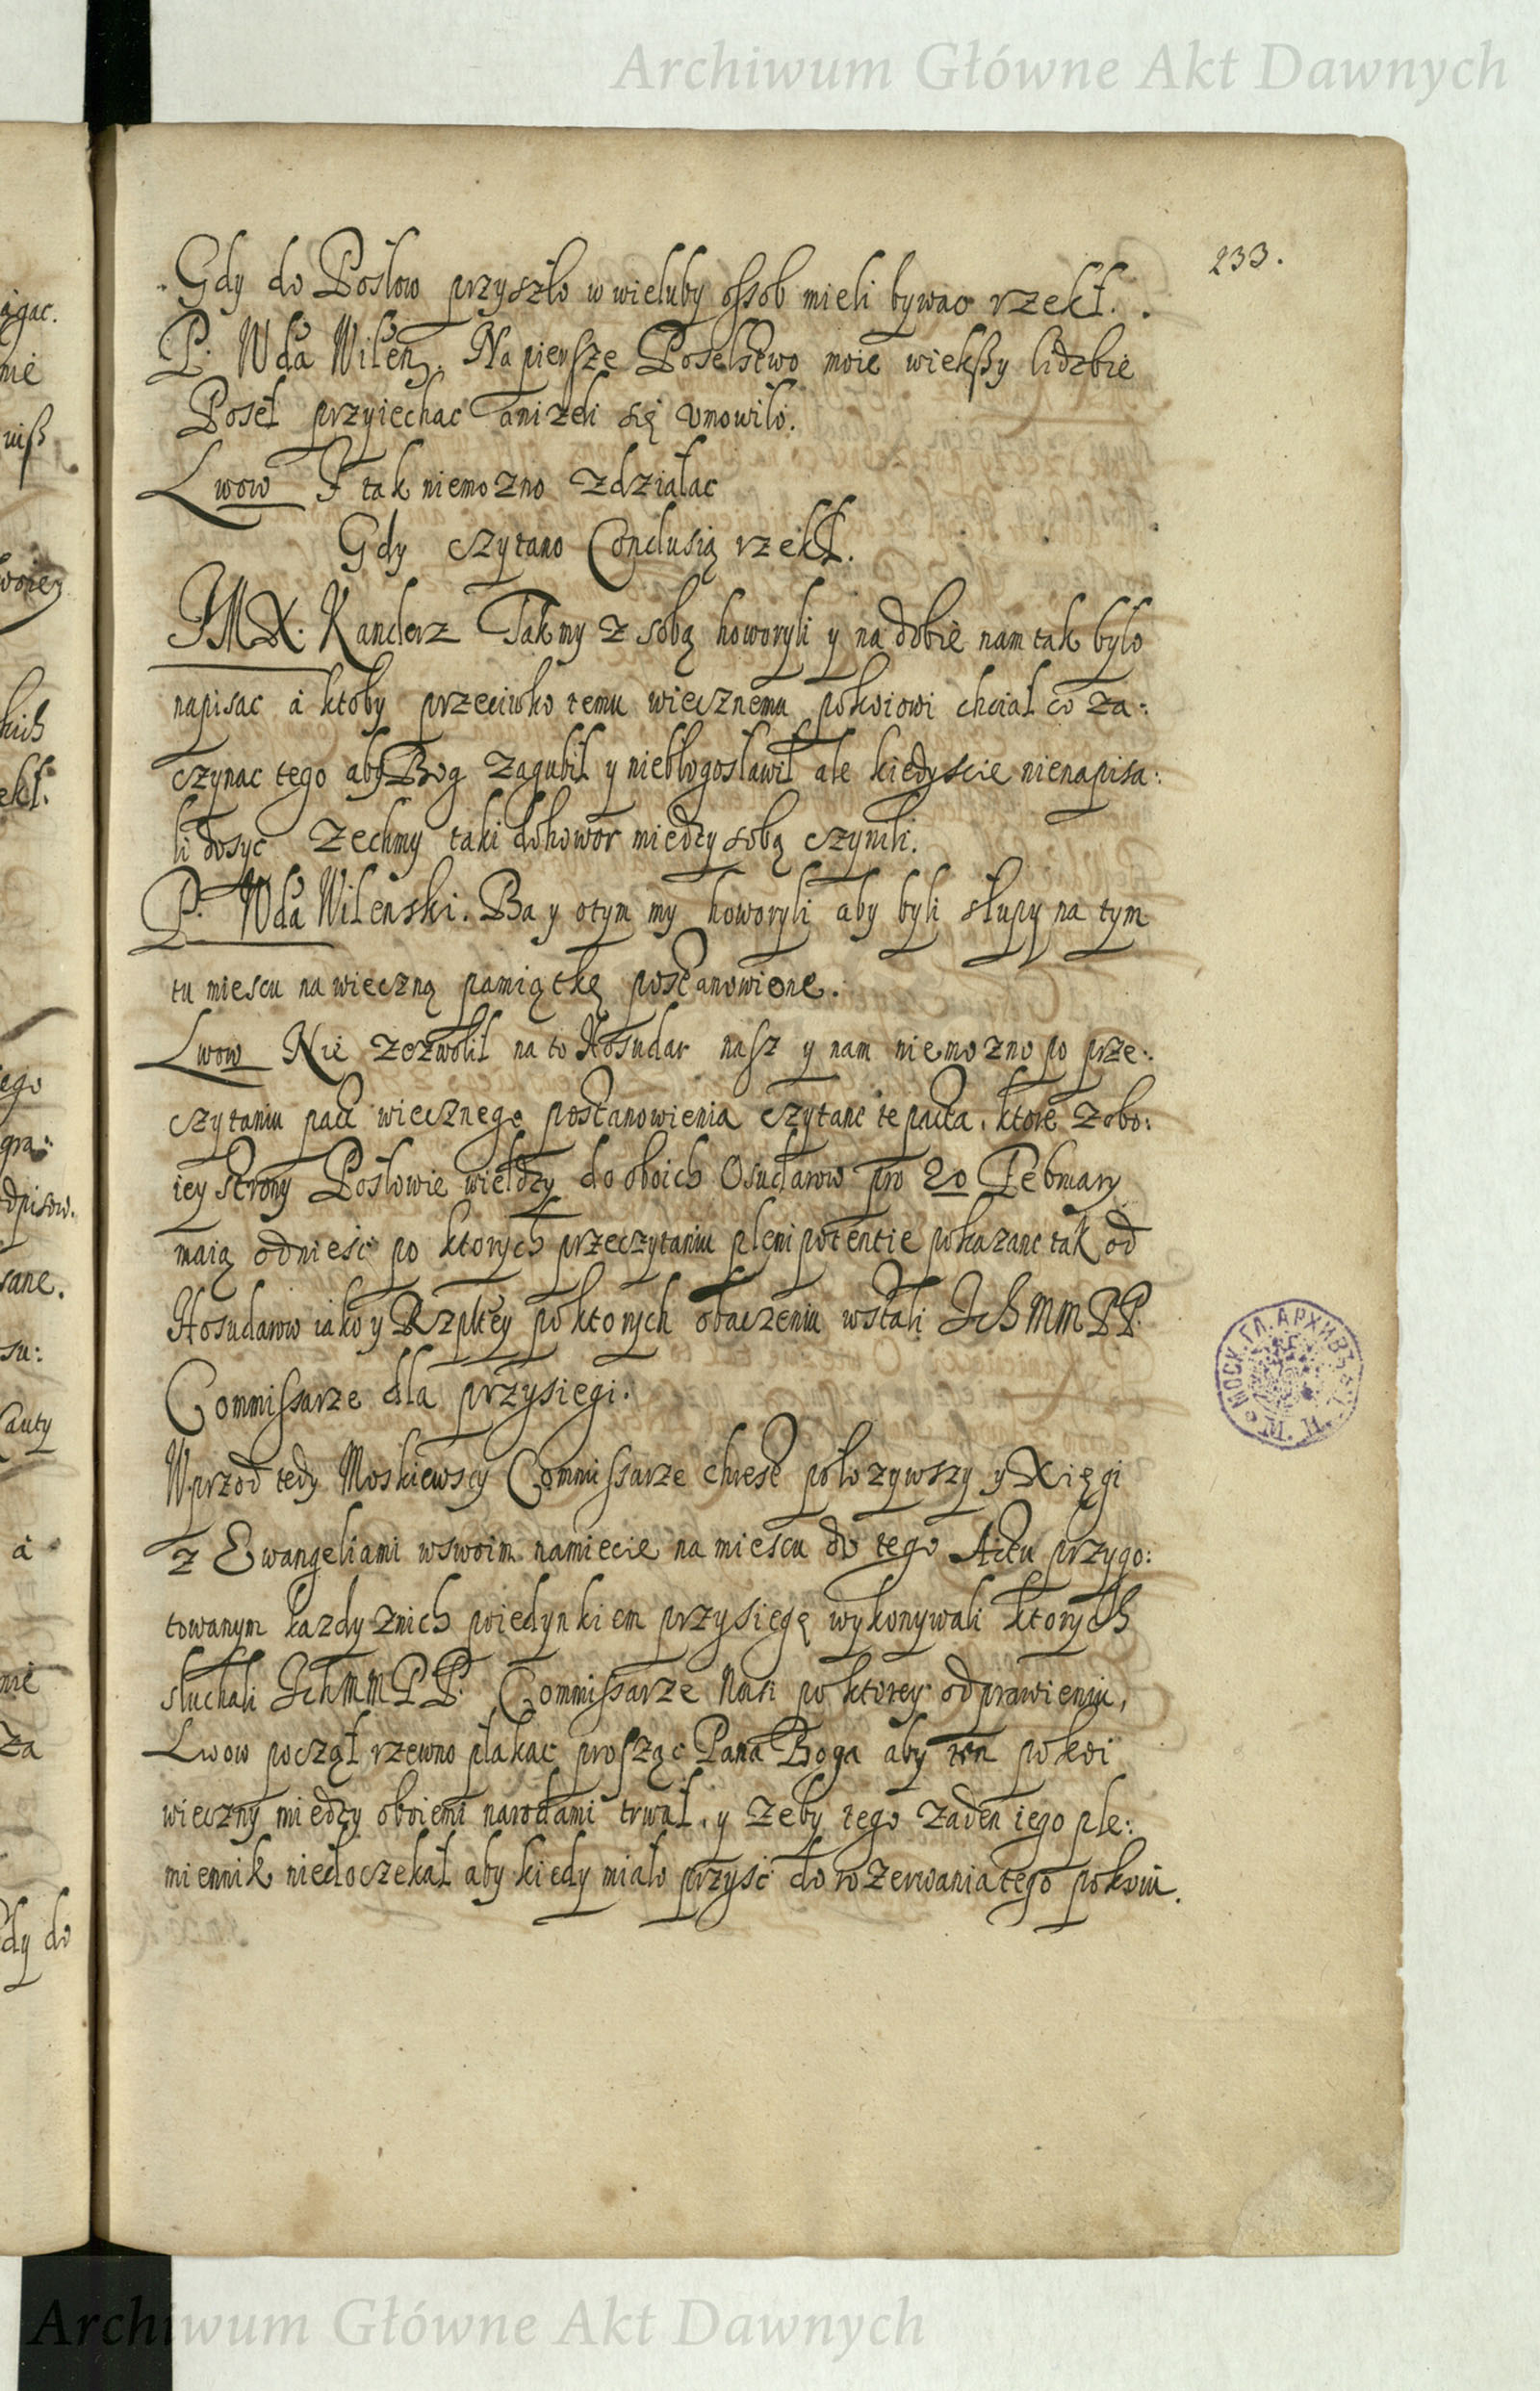 Archiwum Główne Akt Dawnych
233.
Gdy do Posłow przyszło w wieluby ossob mieli bywac rzekł.
P. Wda Wilen. Na piersze Poselstwo moie wiekszy lidzbie
Poseł przyiechac anizeli się umowiło.
Lwow I tak niemozno zdziałac
Gdy czytano Conclusią rzekł.
JMX. Kanclerz Takmy z sobą howoryli y na dobie nam tak było
napisac á ktoby przeciwko temu wiecznemu pokoiowi chciał co za:
czynac tego aby Bog zagubił y niebłogosławił ale kiedyscie nienapisa:
li dosyc zechmy taki dohowor miedzy sobą czynili.
P. Wda Wilenski. Ba y otym my howoryli aby byli słupy na tym
tu miescu na wieczną pamiątkę postanowione.
Lwow Nie zezwolił na to Hosudar nasz y nam niemozno po prze:
czytaniu pact wiecznego postanowienia czytane te pacta, ktore z obo:
iey strony Posłowie wieldzy do oboich Osudarow pro 20 Februarÿ
maią odniesć po ktorych przeczytaniu plenipotentie pokazane tak od
Hosudarow iako y Rzpltey po ktorych obaczeniu wstali Ich MM PP.
Commissarze dla przysiegi.
Wprzod tedy Moskiewscy Commissarze chrest połozywszy y Xięgi
z Ewangeliami wswoim namiecie na miescu do tego Actu przygo:
towanym kazdy znich poiedynkiem przysięgę wykonywali ktorych
słuchali Ich MM PP. Commissarze Nasi po ktorey odprawieniu,
Lwow począł rzewno płakac prosząc Pana Boga aby ten pokoi
wieczny miedzy oboiemi narodami trwał, y zeby tego zaden iego ple:
miennik niedoczekał aby kiedy miało przysć do rozerwania tego pokoiu.
МОСК. ГЛ. АРХИВЪ
Archiwum Główne Akt Dawnych